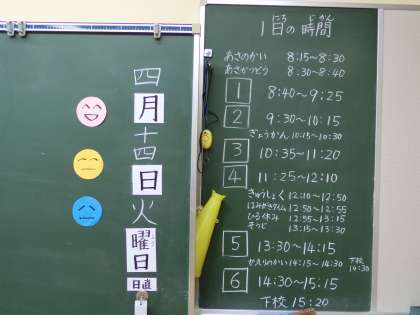 四
月
十
四
日
火
曜
日
日直
1日の時間
にち じかん
あさのかい 8:15〜8:30
あさがつどう 8:30〜8:40
1 8:40〜9:25
2 9:30〜10:15
ぎょうかん 10:15〜10:30
3 10:35〜11:20
4 11:25〜12:10
きゅうしょく 12:10〜12:50
はみがきタイム 12:50〜12:55
ひる休み 12:55〜13:15
そうじ 13:15〜13:30
5 13:30〜14:15
かえりのかい 14:15〜14:30 下校 14:30
6 14:30〜15:15
下校 15:20